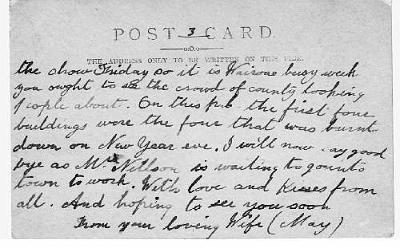 POST CARD.
3
THE ADDRESS ONLY TO BE WRITTEN ON THIS SIDE.
the show Friday so it is Wairoa busy week
you ought to see the crowd of county looking
people about. On this p.c. the first four
buildings were the four that was burnt
down on New Year eve. I will now say good
bye as Mrs Nillson is waiting to go into
town to work. With love and kisses from
all. And hoping to see you soon
From your loving Wife (May)